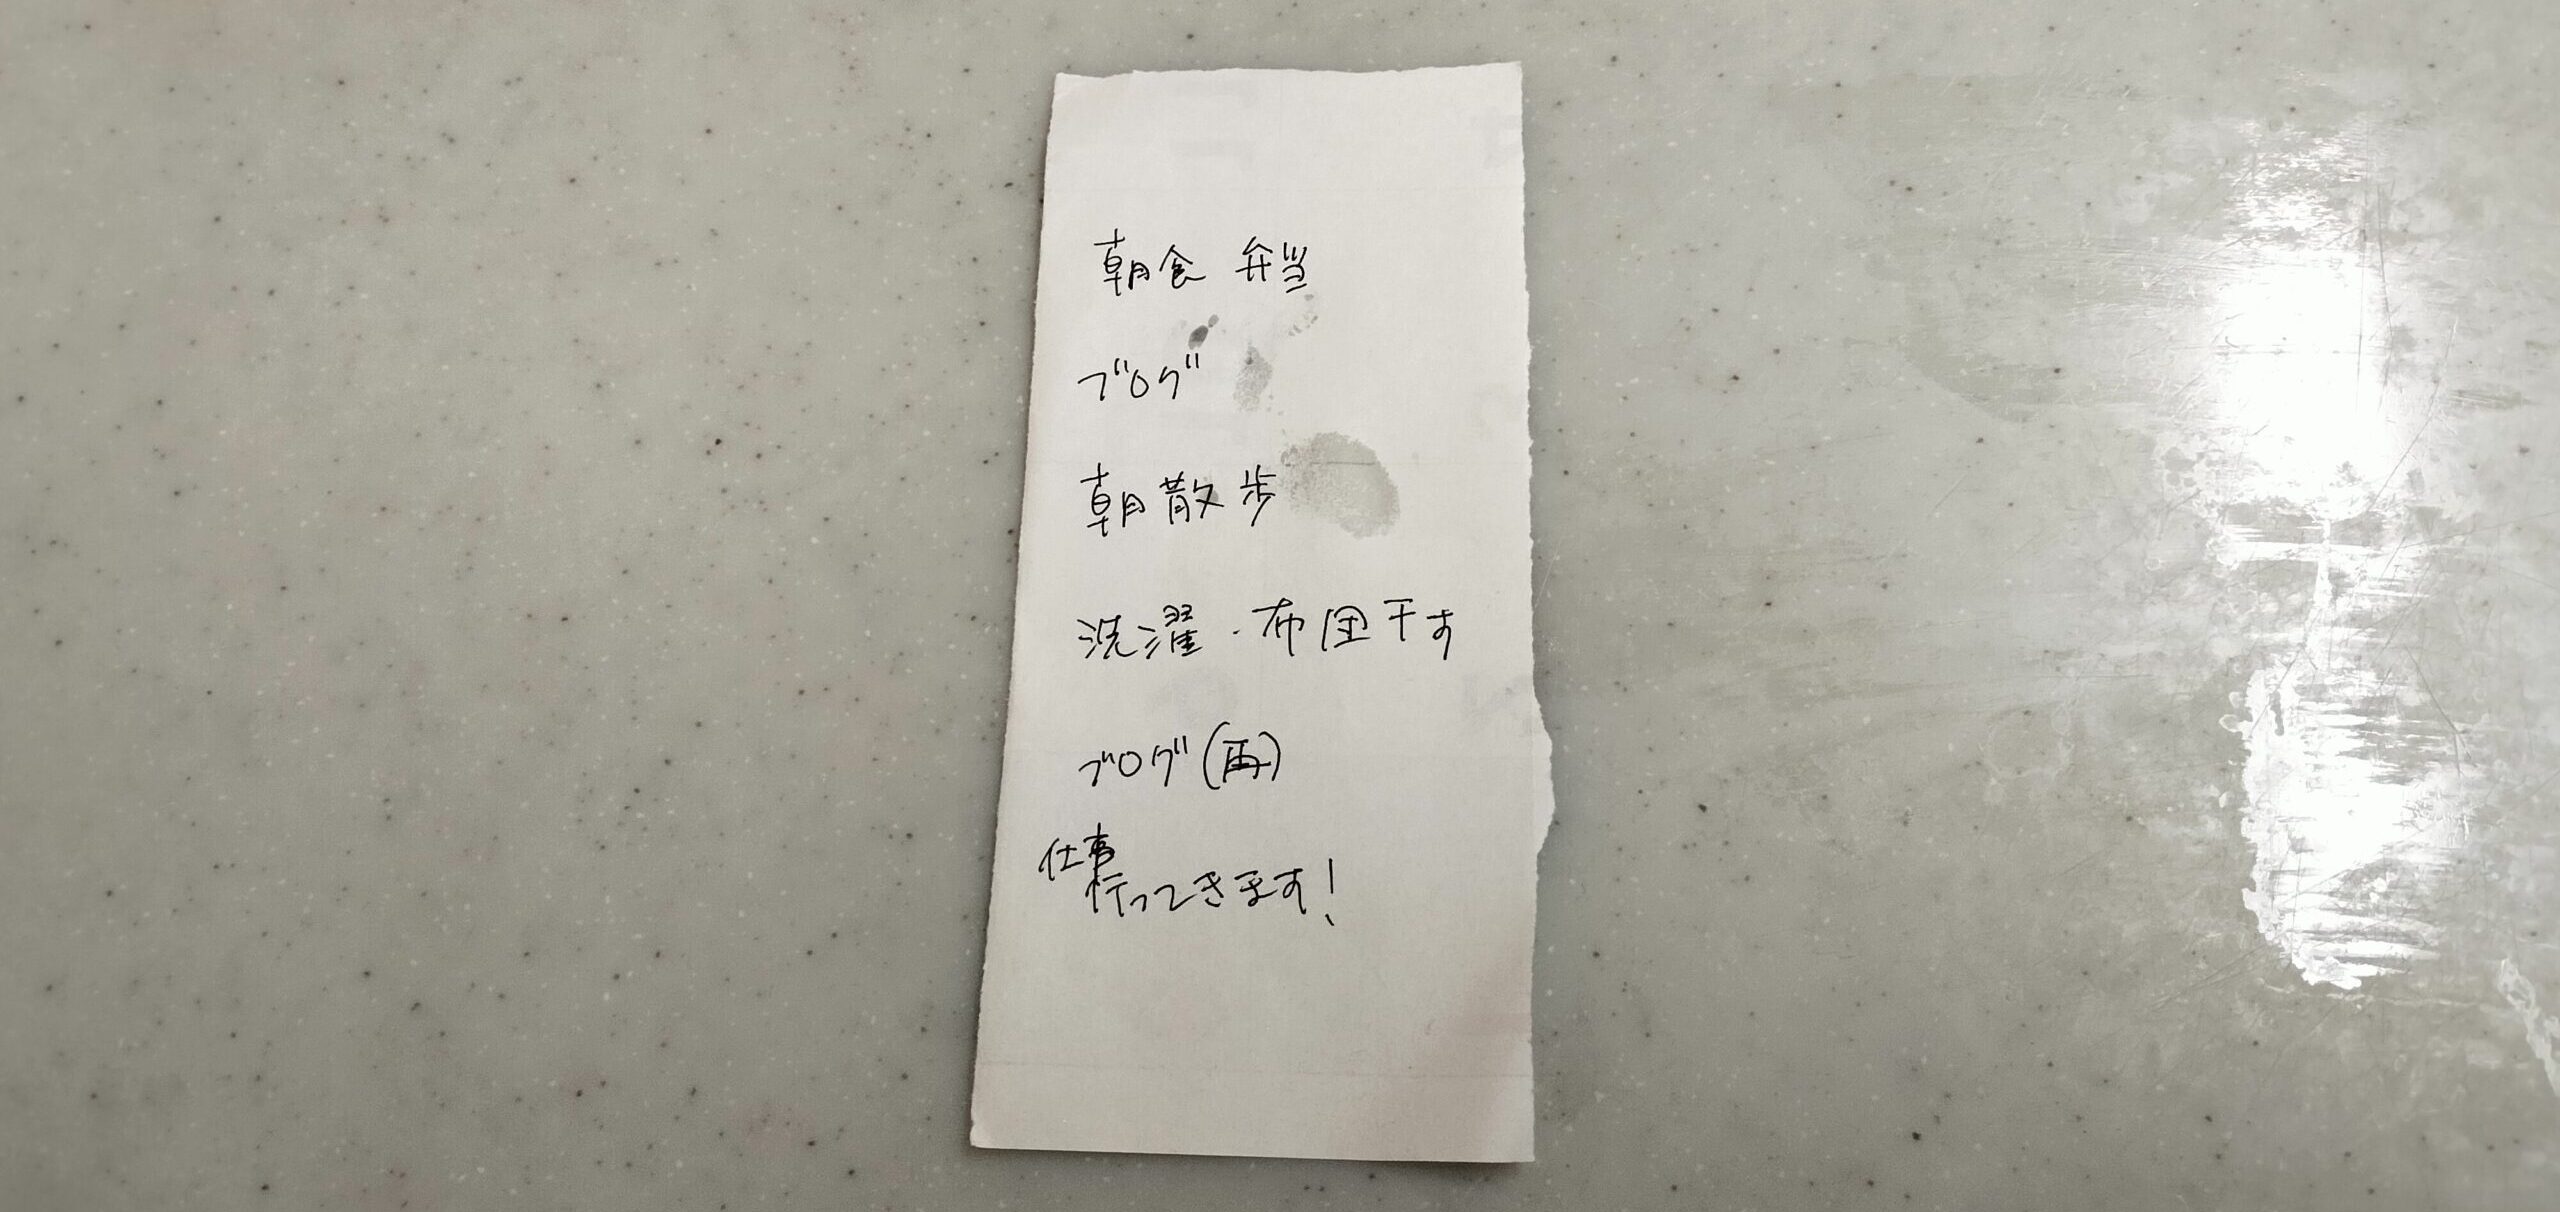 朝食 弁当
ブログ
朝散歩
洗濯・布団干す
ブログ(再)
仕事
行ってきます!